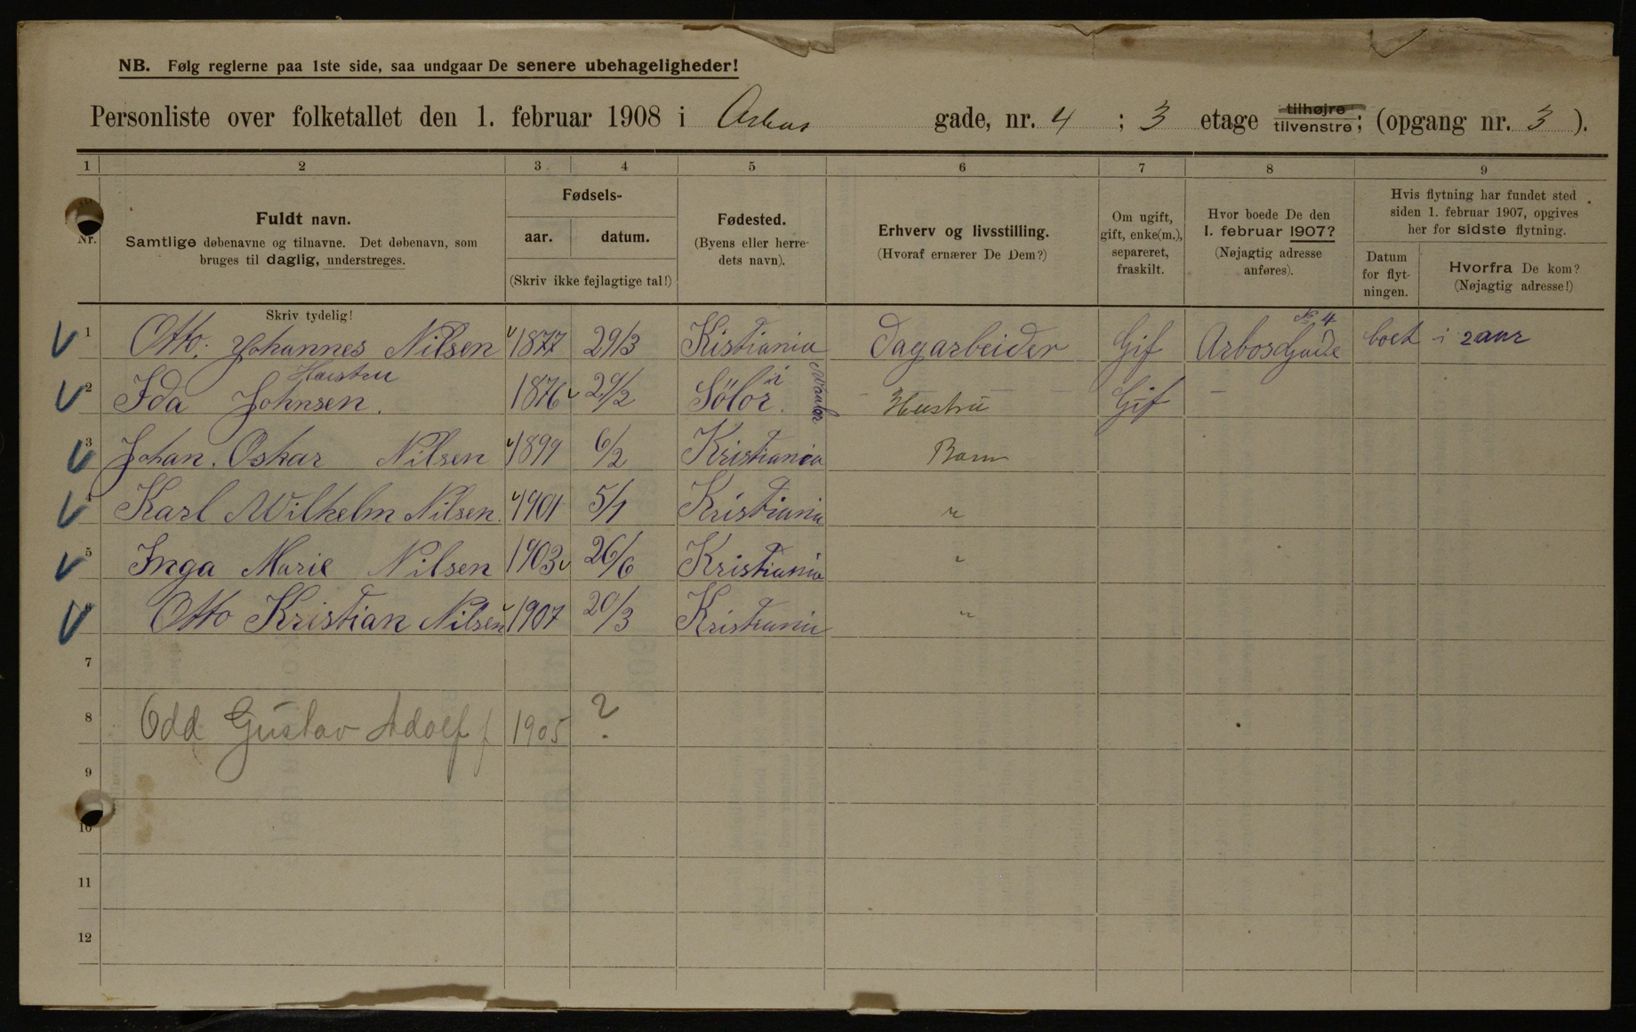 NB. Følg reglerne paa 1ste side, saa undgaar De senere ubehageligheder!
Personliste over folketallet den 1. februar 1908 i Arbos gade, nr. 4 ; 3 etage tilhøjre tilvenstre; (opgang nr. 3 ).
1 2 3 4 5 6 7 8 9
Nr.
Fuldt navn.
Samtlige døbenavne og tilnavne. Det døbenavn, som
bruges til daglig, understreges.
Fødsels-
aar. datum.
(Skriv ikke fejlagtige tal!)
Fødested.
(Byens eller herre-
dets navn).
Erhverv og livsstilling.
(Hvoraf ernærer De Dem?)
Om ugift,
gift, enke(m.),
separeret,
fraskilt.
Hvor boede De den
1. februar 1907?
(Nøjagtig adresse
anføres).
Hvis flytning har fundet sted
siden 1. februar 1907, opgives
her for sidste flytning.
Datum
for flyt-
ningen.
Hvorfra De kom?
(Nøjagtig adresse!)
Skriv tydelig!
No 4
1 Otto. Johannes Nilsen 1877 29/3 Kistiania Dagarbeider Gif Arbosgade boet i 2 aar
Haustru
2 Ida Johnsen. 1876 29/2 Sölör. i Hustru Gif
3 Johan. Oskar Nilsen 1899 6/2 Kristiania Barn
Karl Wilhelm Nilsen. 1901 5/1 Kristiania "
5 Inga Marie Nilsen 1903 26/6 Kristiania "
Otto Kristian Nilsen 1907 20/3 Kristiania "
7
8 Odd Gustav Adolf f 1905 ?
9
10
11
12